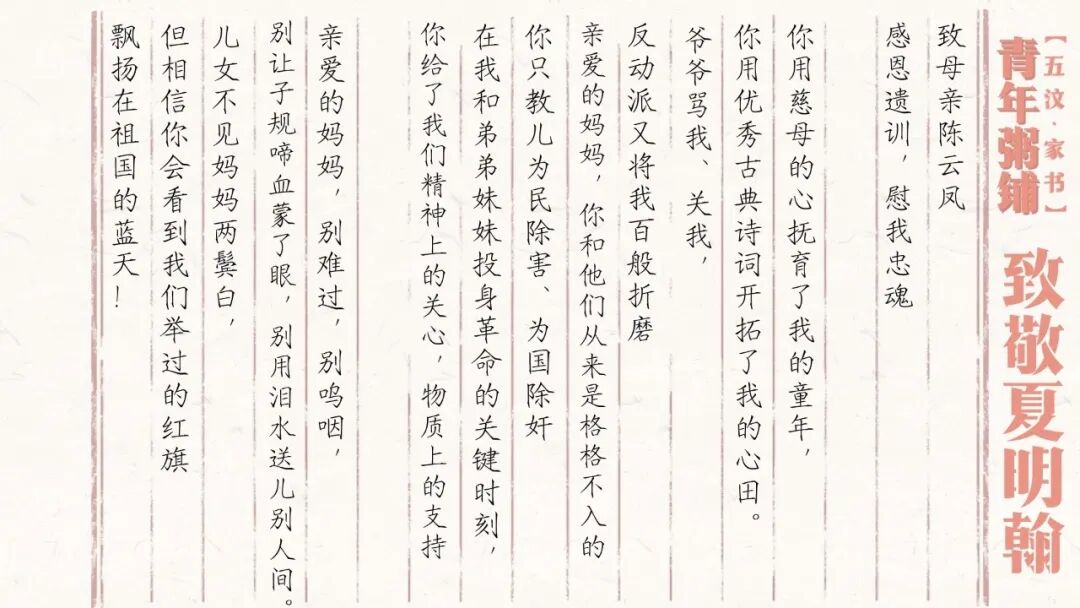 【五汶·家书】
青年粥铺
致敬夏明翰
致母亲陈云凤
感恩遗训，慰我忠魂
你用慈母的心抚育了我的童年，
你用优秀古典诗词开拓了我的心田。
爷爷骂我、关我，
反动派又将我百般折磨
亲爱的妈妈，你和他们从来是格格不入的
你只教儿为民除害、为国除奸
在我和弟弟妹妹投身革命的关键时刻，
你给了我们精神上的关心，物质上的支持
亲爱的妈妈，别难过，别呜咽，
别让子规啼血蒙了眼，别用泪水送儿别人间。
儿女不见妈妈两鬓白，
但相信你会看到我们举过的红旗
飘扬在祖国的蓝天！